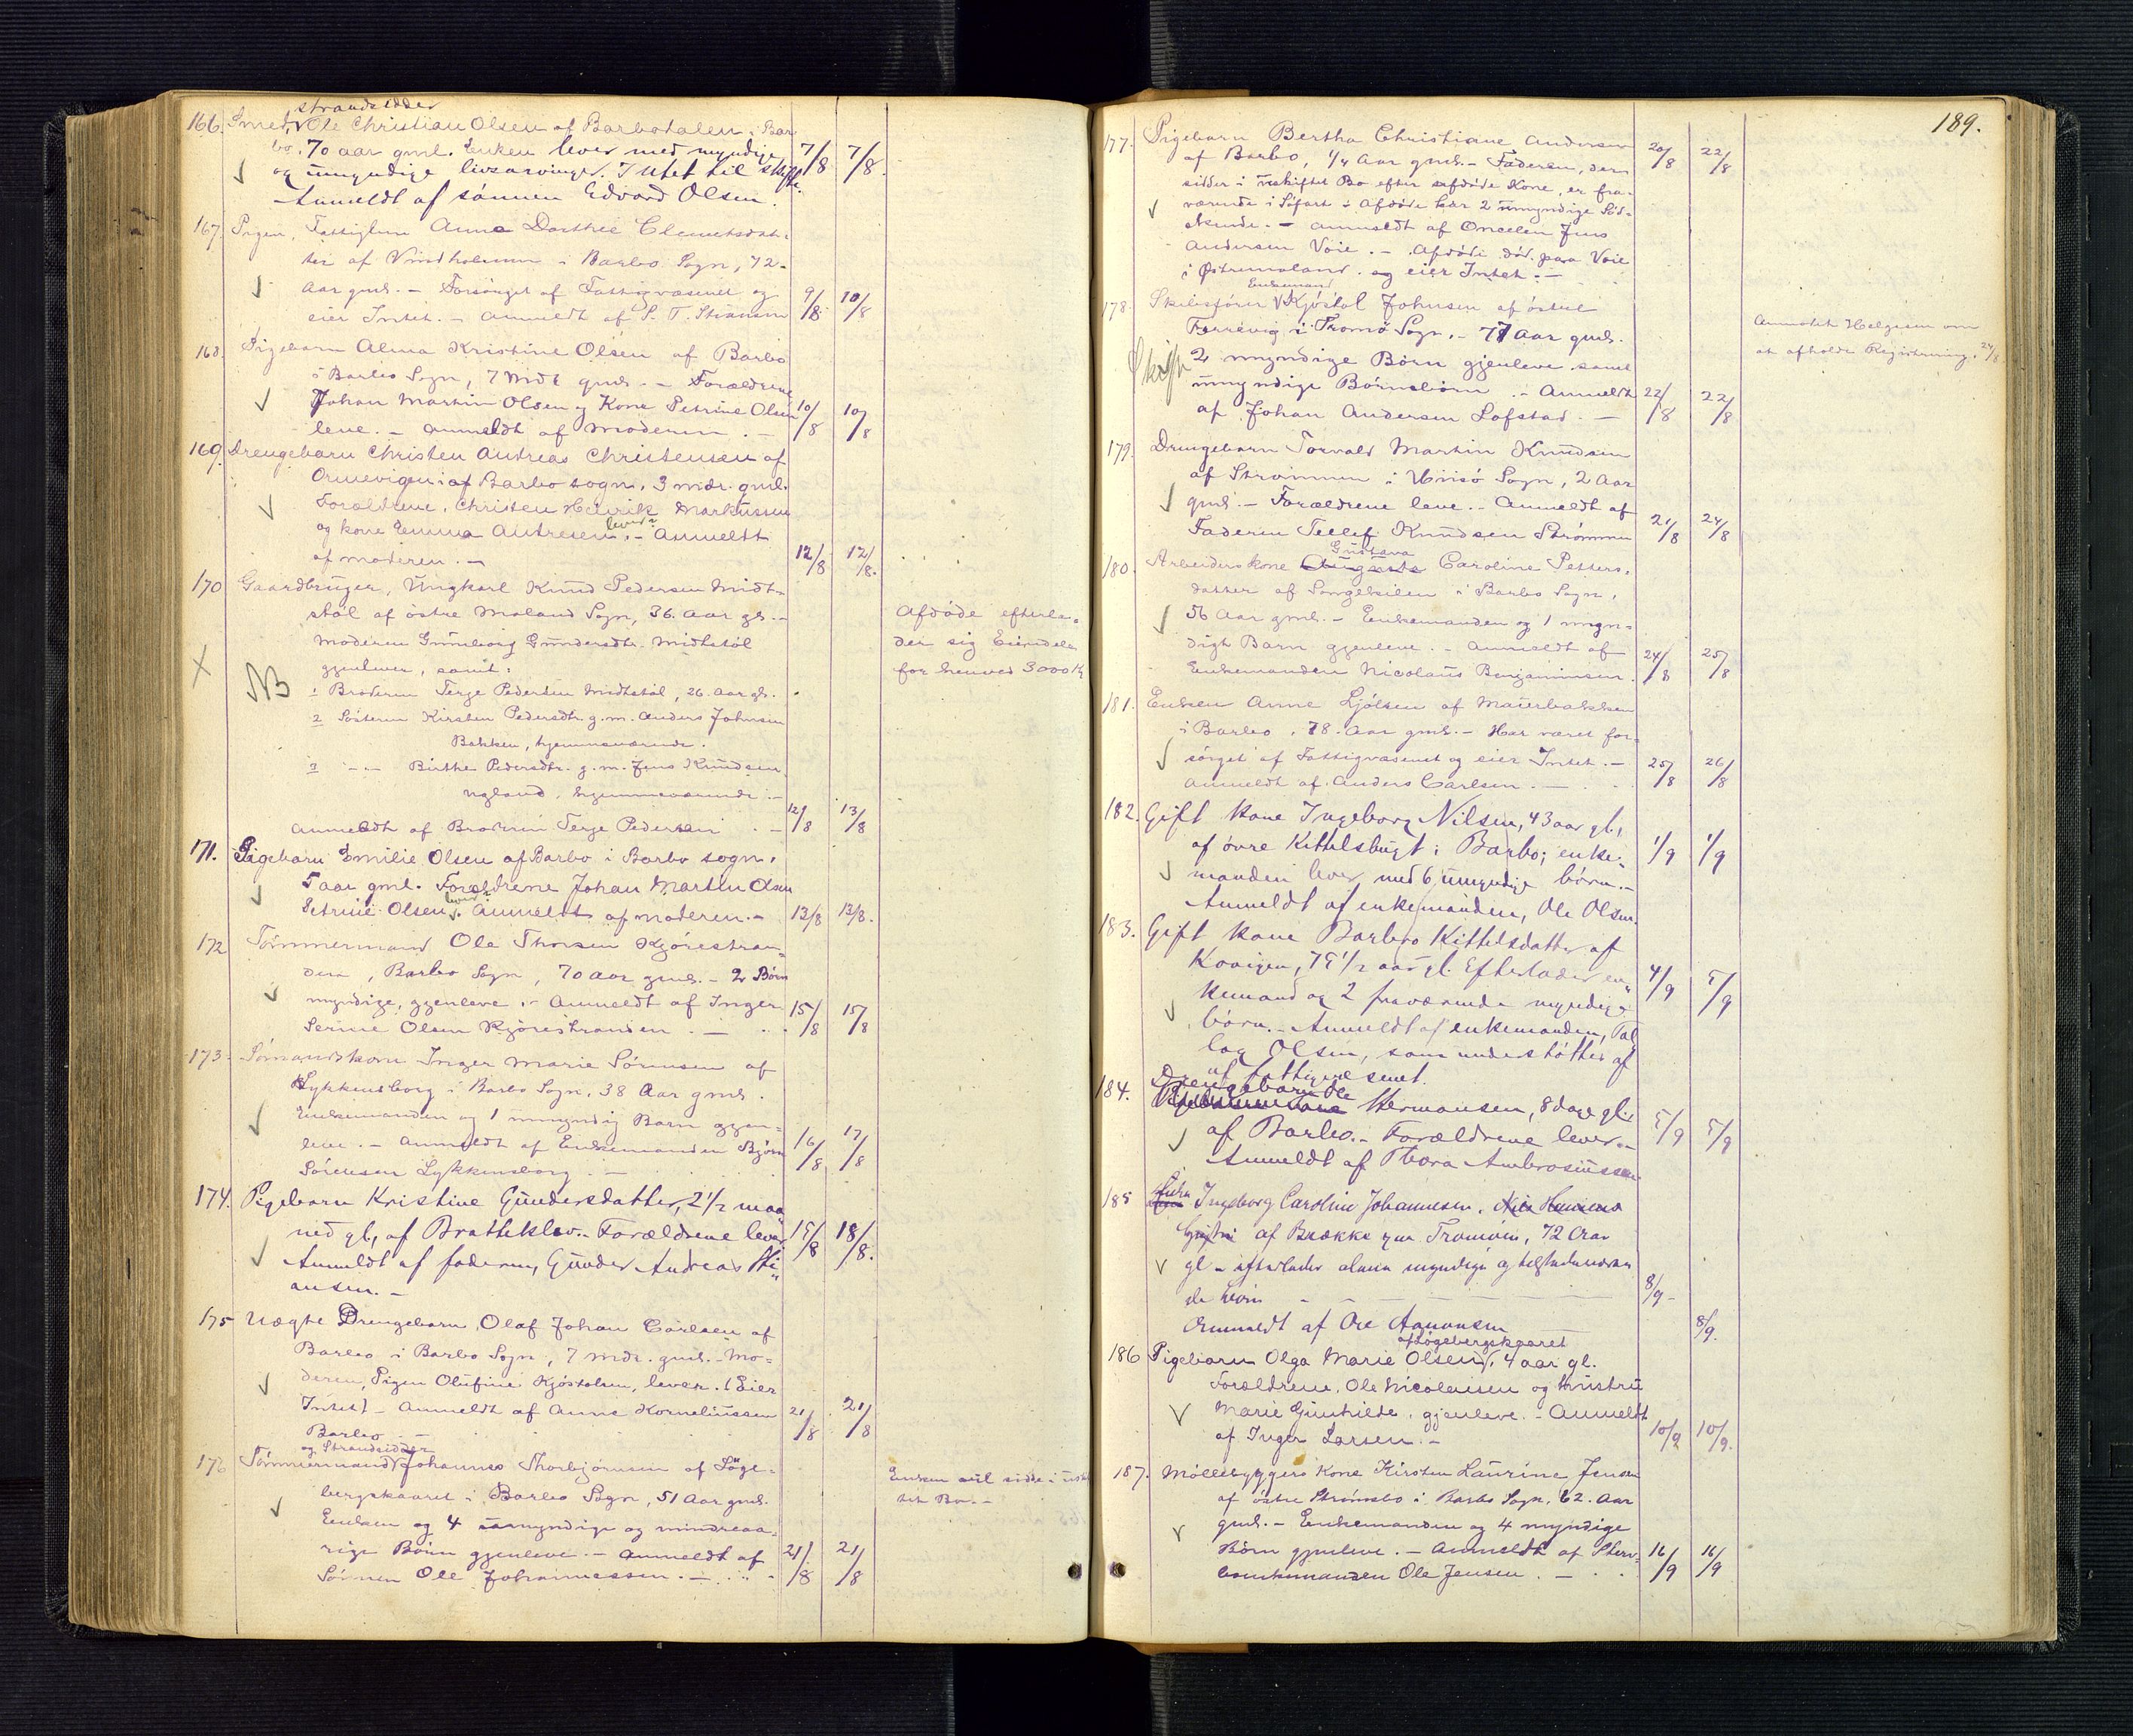 strandsidder
166. Smed, Ole Christian Olsen af Barbodalen i Bar
bo. 70 aar gml. Enken lever med myndige 7/8 7/8
og umyndige livsarvinger. Intet til skifte.
Anmeldt af sønnen Edvard Olsen.
167. Pigen, Fattiglem Anne Dorthee Clemetsdat-
ter af Vindholmen i Barbo Sogn, 72-
Aar gml. - Forsørget af Fattigvæsenet og 9/8 10/8
eier Intet. - Anmeldt af S. T.
168. Pigebarn Alma Kristine Olsen af Barbo
i Barbo Sogn, 7 Mdr gml. - Forældrene
Johan Martin Olsen og Kone Petrine Olsen 10/8 10/8
leve. - Anmeldt af Moderen. -
169. Drengebarn Christen Andreas Christensen af
Ormevigen i af Barbo sogn, 3 mdr. gml.
Forældrene, Christen Henrik Markussen
og kone Emma Andresen, lever - Anmeldt
af moderen. - 12/8 12/8.
170 Gaardbruger, Ungkarl Knud Pedersen Midt-
støl af østre Moland Sogn, 36. Aar gl. -
Moderen Gunborg Gundersdtr. Midtstøl
gjenlever, samt:
NB
1 Broderen Terge Pedersen Midtstøl, 26. Aar gl.
2 Søsteren Kirsten Pedersdtr. g. m. Anders Johnsen
Bakken, hjemmeværende.
3 -"- Birthe Pedersdtr. g. m. Jens Knudsen
Ugland, hjemmeværende. -
Anmeldt af Broderen Terge Pedersen. - 12/8 13/8
Afdøde efterla-
der sig Eiendele
for henved 3000 Kr
171. Pigebarn Emilie Olsen af Barbo i Barbo sogn,
5 aar gml. Forældrene Johan Martin Olsen
Petrine Olsen lever. Anmeldt af moderen. - 13/8 13/8.
172 Tømmermand Ole Thorsen Kjørestran-
den, Barbo Sogn, 70 Aar gml. - 2 Børn
myndige, gjenleve. - Anmeldt af Inger 15/8 15/8
Serine Olsen Kjørestranden. -
173. Sømandskone Inger Marie Sørensen af
Lykkensborg i Barbo Sogn, 38 Aar gml.
Enkemanden og 1 umyndig Barn gjen-
leve. - Anmeldt af Enkemanden Bjørn 16/8 17/8
Sørensen Lykkensborg. -
174. Pigebarn Kristine Gundersdatter, 2 1/2 maa
ned gl, af Bratteklev. - Forældrene lever 15/8 18/8.
Anmeldt af faderen, Gunder Andreas Sti-
ansen. -
175 Uægte Drengebarn, Olaf Johan Carlsen af
Barbo i Barbo Sogn, 7 Mdr. gml. - Mo-
deren, Pigen Olufine Kjøstolsen, lever. (Eier
Intet) - Anmeldt af Anne Korneliussen 21/8 21/8
Barbo. -
og Strandsidder
176 Tømmermand Johannes Thorbjørnsen af Løge-
bergskaaret i Barbo Sogn, 51 Aar gml.
Enken og 4 myndige og mindreaa-
rige Børn gjenleve. - Anmeldt af 21/8 21/8
Sønnen Ole Johannessen. -
Enken vil sidde i uskif
tet Bo. -
189.
177. Pigebarn Bertha Christiane Andersen
af Barbo, 1/4 Aar gml. - Faderen, der 20/8 22/8
sidder i uskiftet Bo efter afdøde Kone, er fra-
værende i Søfart. Afdøde har 2 umyndige Sød-
skende. - Anmeldt af Onkelen Jens
Andersen Voie. - Afdøde død paa Voie
i Østremoland. og eier Intet. -
Enkemand
178. Skibsfører Kjøstol Johnsen af østre
Færvig i Tromø Sogn. - 77 Aar gml.
Skifte
2 myndige Børn gjenleve samt
umyndige Børnebørn. - Anmeldt 22/8 22/8
af Johan Andersen Lofstad. -
Anmodet Helgesen om
at afholde Registrering. 24/8
179. Drengebarn Torvald Martin Knudsen
af Strømmen i Hiisø Sogn, 2 Aar
gml. - Forældrene leve. - Anmeldt af
Faderen Tellef Knudsen Strømmen 21/8 24/8
Gustava
180. Arbeiderskone Augusta Caroline Petters-
datter af Songekilen i Barbo Sogn,
56 Aar gml. - Enkemanden og 1 myn-
digt Barn gjenleve. - Anmeldt af
Enkemanden Nicolaus Benjaminsen. 24/8 25/8
181. Enken Anne Ljølsen af Maurbakken
i Barbo, 78. Aar gml. - Har været for-
sørget af Fattigvæsenet og eier Intet. - 25/8 26/8
Anmeldt af Anders Carlsen. -
182. Gift kone Ingeborg Nilsen, 43 aar gl.,
af øvre Kittelsbugt i Barbo; enke- 1/9 1/9
manden lever med 6 umyndige børn. -
Anmeldt af enkemanden, Ole Olsen.
183. Gift kone Barbro Kittelsdatter af
Kovigen, 75 1/2 aar gl. Efterlader en- 4/9 5/9
kemand og 2 fraværende myndige
børn. - Anmeldt af enkemanden, Tal
lag Olsen, som understøttes af
af fattigvæsenet.
184. Drengebarn Ole
Hermansen, 8 dage gl.
af Barbo. - Forældrene lever. - 5/9 5/9
Anmeldt af Thora Ambrosiussen
185 Enke Ingeborg Caroline Johannesen,
af Brække paa Tromøen, 72 Aar
gl - efterlader alene myndige og tilstedeværen
de børn - 8/9 -
Anmeldt af Ole Aanonsen 8/9.
af Løgebergskaaret
186 Pigebarn Olga Marie Olsen, 4 aar gl.
Forældrene, Ole Nicolaisen og hustru
Marie Gunhilde, gjenleve. - Anmeldt
af Inger Larsen. - 10/9 10/9.
187. Møllebyggers Kone Kirsten Laurine Jensen
af østre Strømsbo i Barbo Sogn, 62. Aar
gml. - Enkemanden og 4 myndige
Børn gjenleve. - Anmeldt af 16/9 16/9
enkemanden Ole Jensen. -